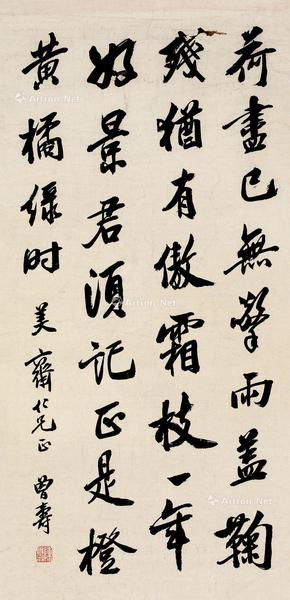 荷盡已無擎雨盖鞠
殘猶有傲霜枝一年
好景君須記正是橙
黄橘緑时
美齋仁兄正 曾壽
Artron.Net